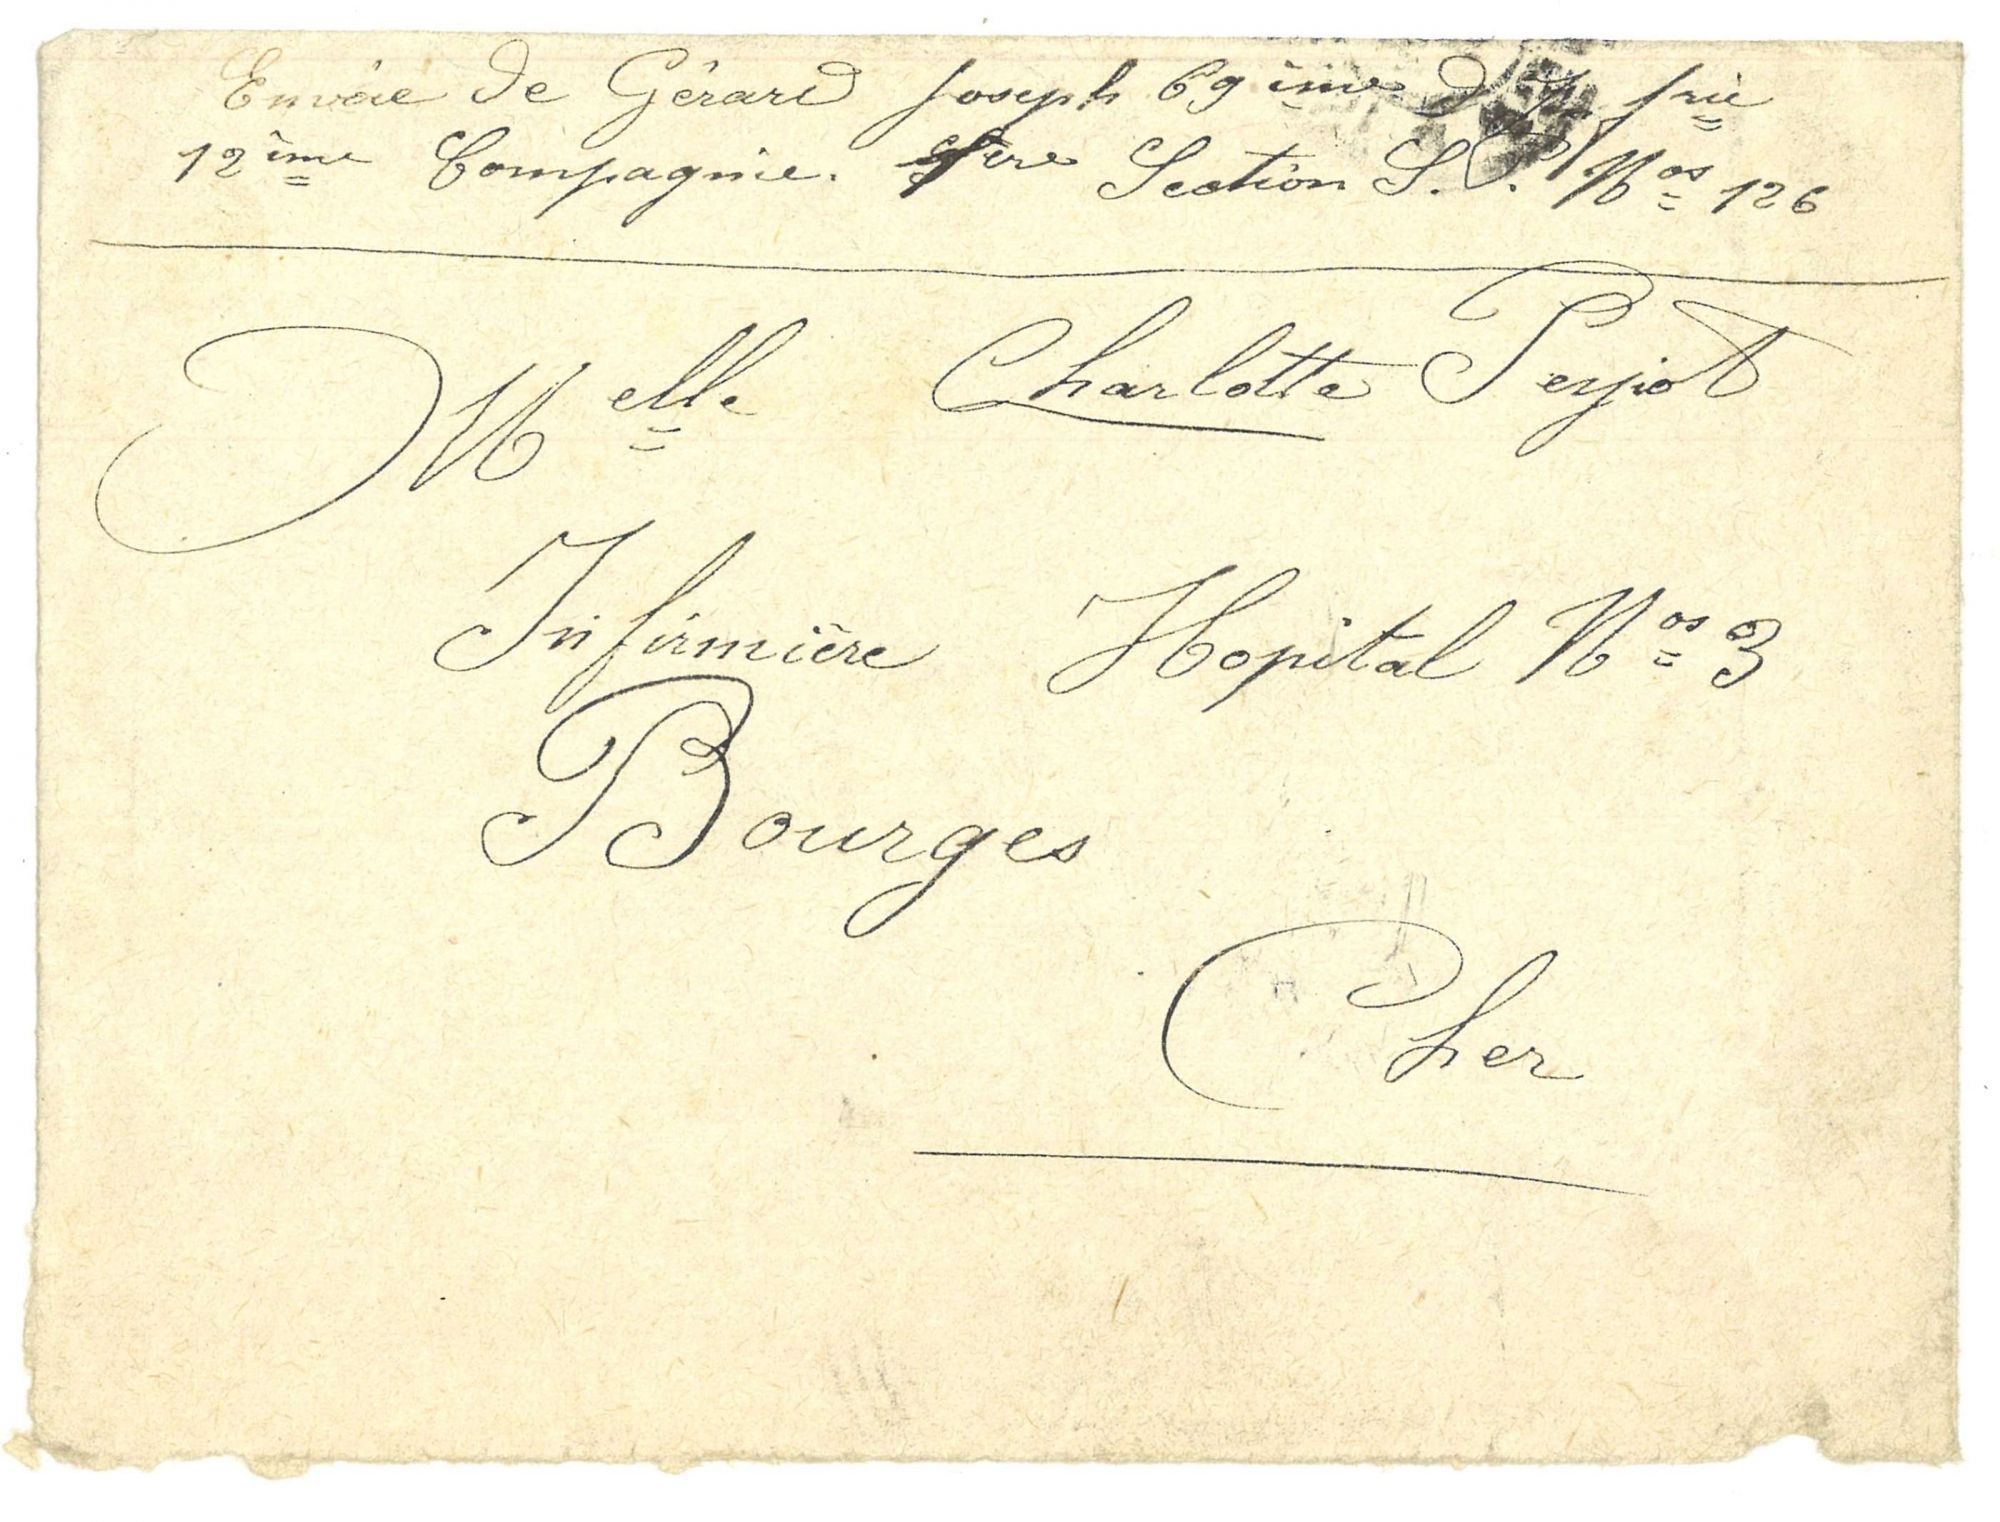 Envoie de Gérard Joseph 69 ème d'
12 ème Compagnie. 1ère Section S.P. Nos 126
Melle Charlotte Perjot
Infirmière Hopital Nos 3
Bourges
Cher